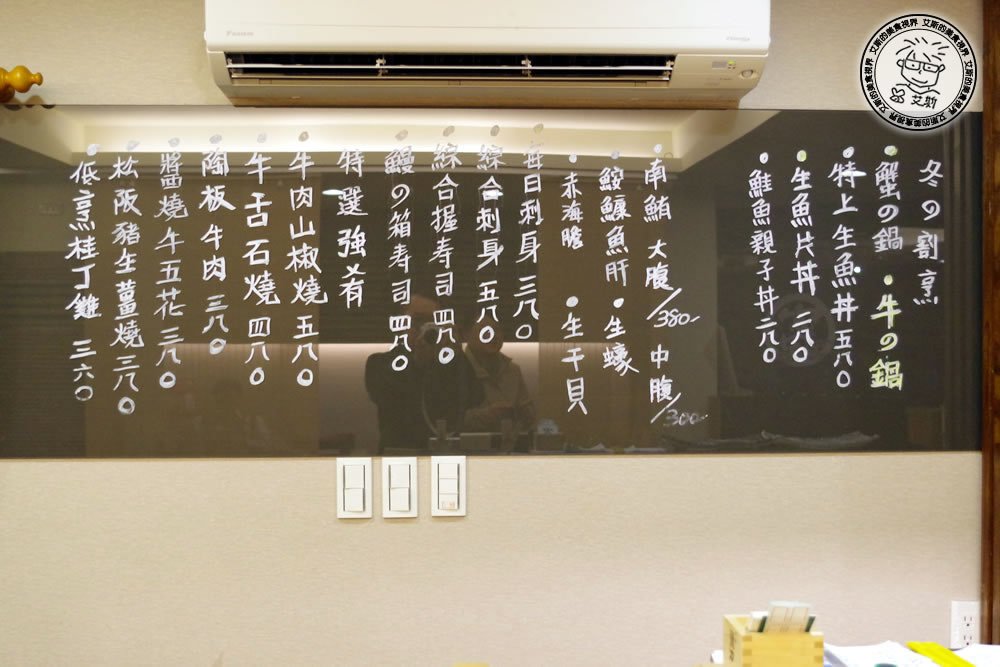 冬の割烹
・蟹の鍋 ・牛の鍋
・特上生魚丼 五八〇
・生魚片丼 二八〇
・鮭魚親子丼 二八〇
・南鮪 大腹/380- 中腹/300-
・鮟鱇魚肝 ・生蠔
・赤海膽 ・生干貝
・每日刺身 三八〇
・綜合刺身 五八〇
・綜合握寿司 四八〇
・鰻の箱寿司 四八〇
・特選強肴
・牛肉山椒燒 五八〇
・牛舌石燒 四八〇
・陶板牛肉 三八〇
・醬燒牛五花 三八〇
・松阪豬生薑燒 三八〇
・低烹桂丁雞 三六〇
艾斯的美食視界 艾斯的美食視界 艾斯的美食視界 艾斯的美食視界
艾斯